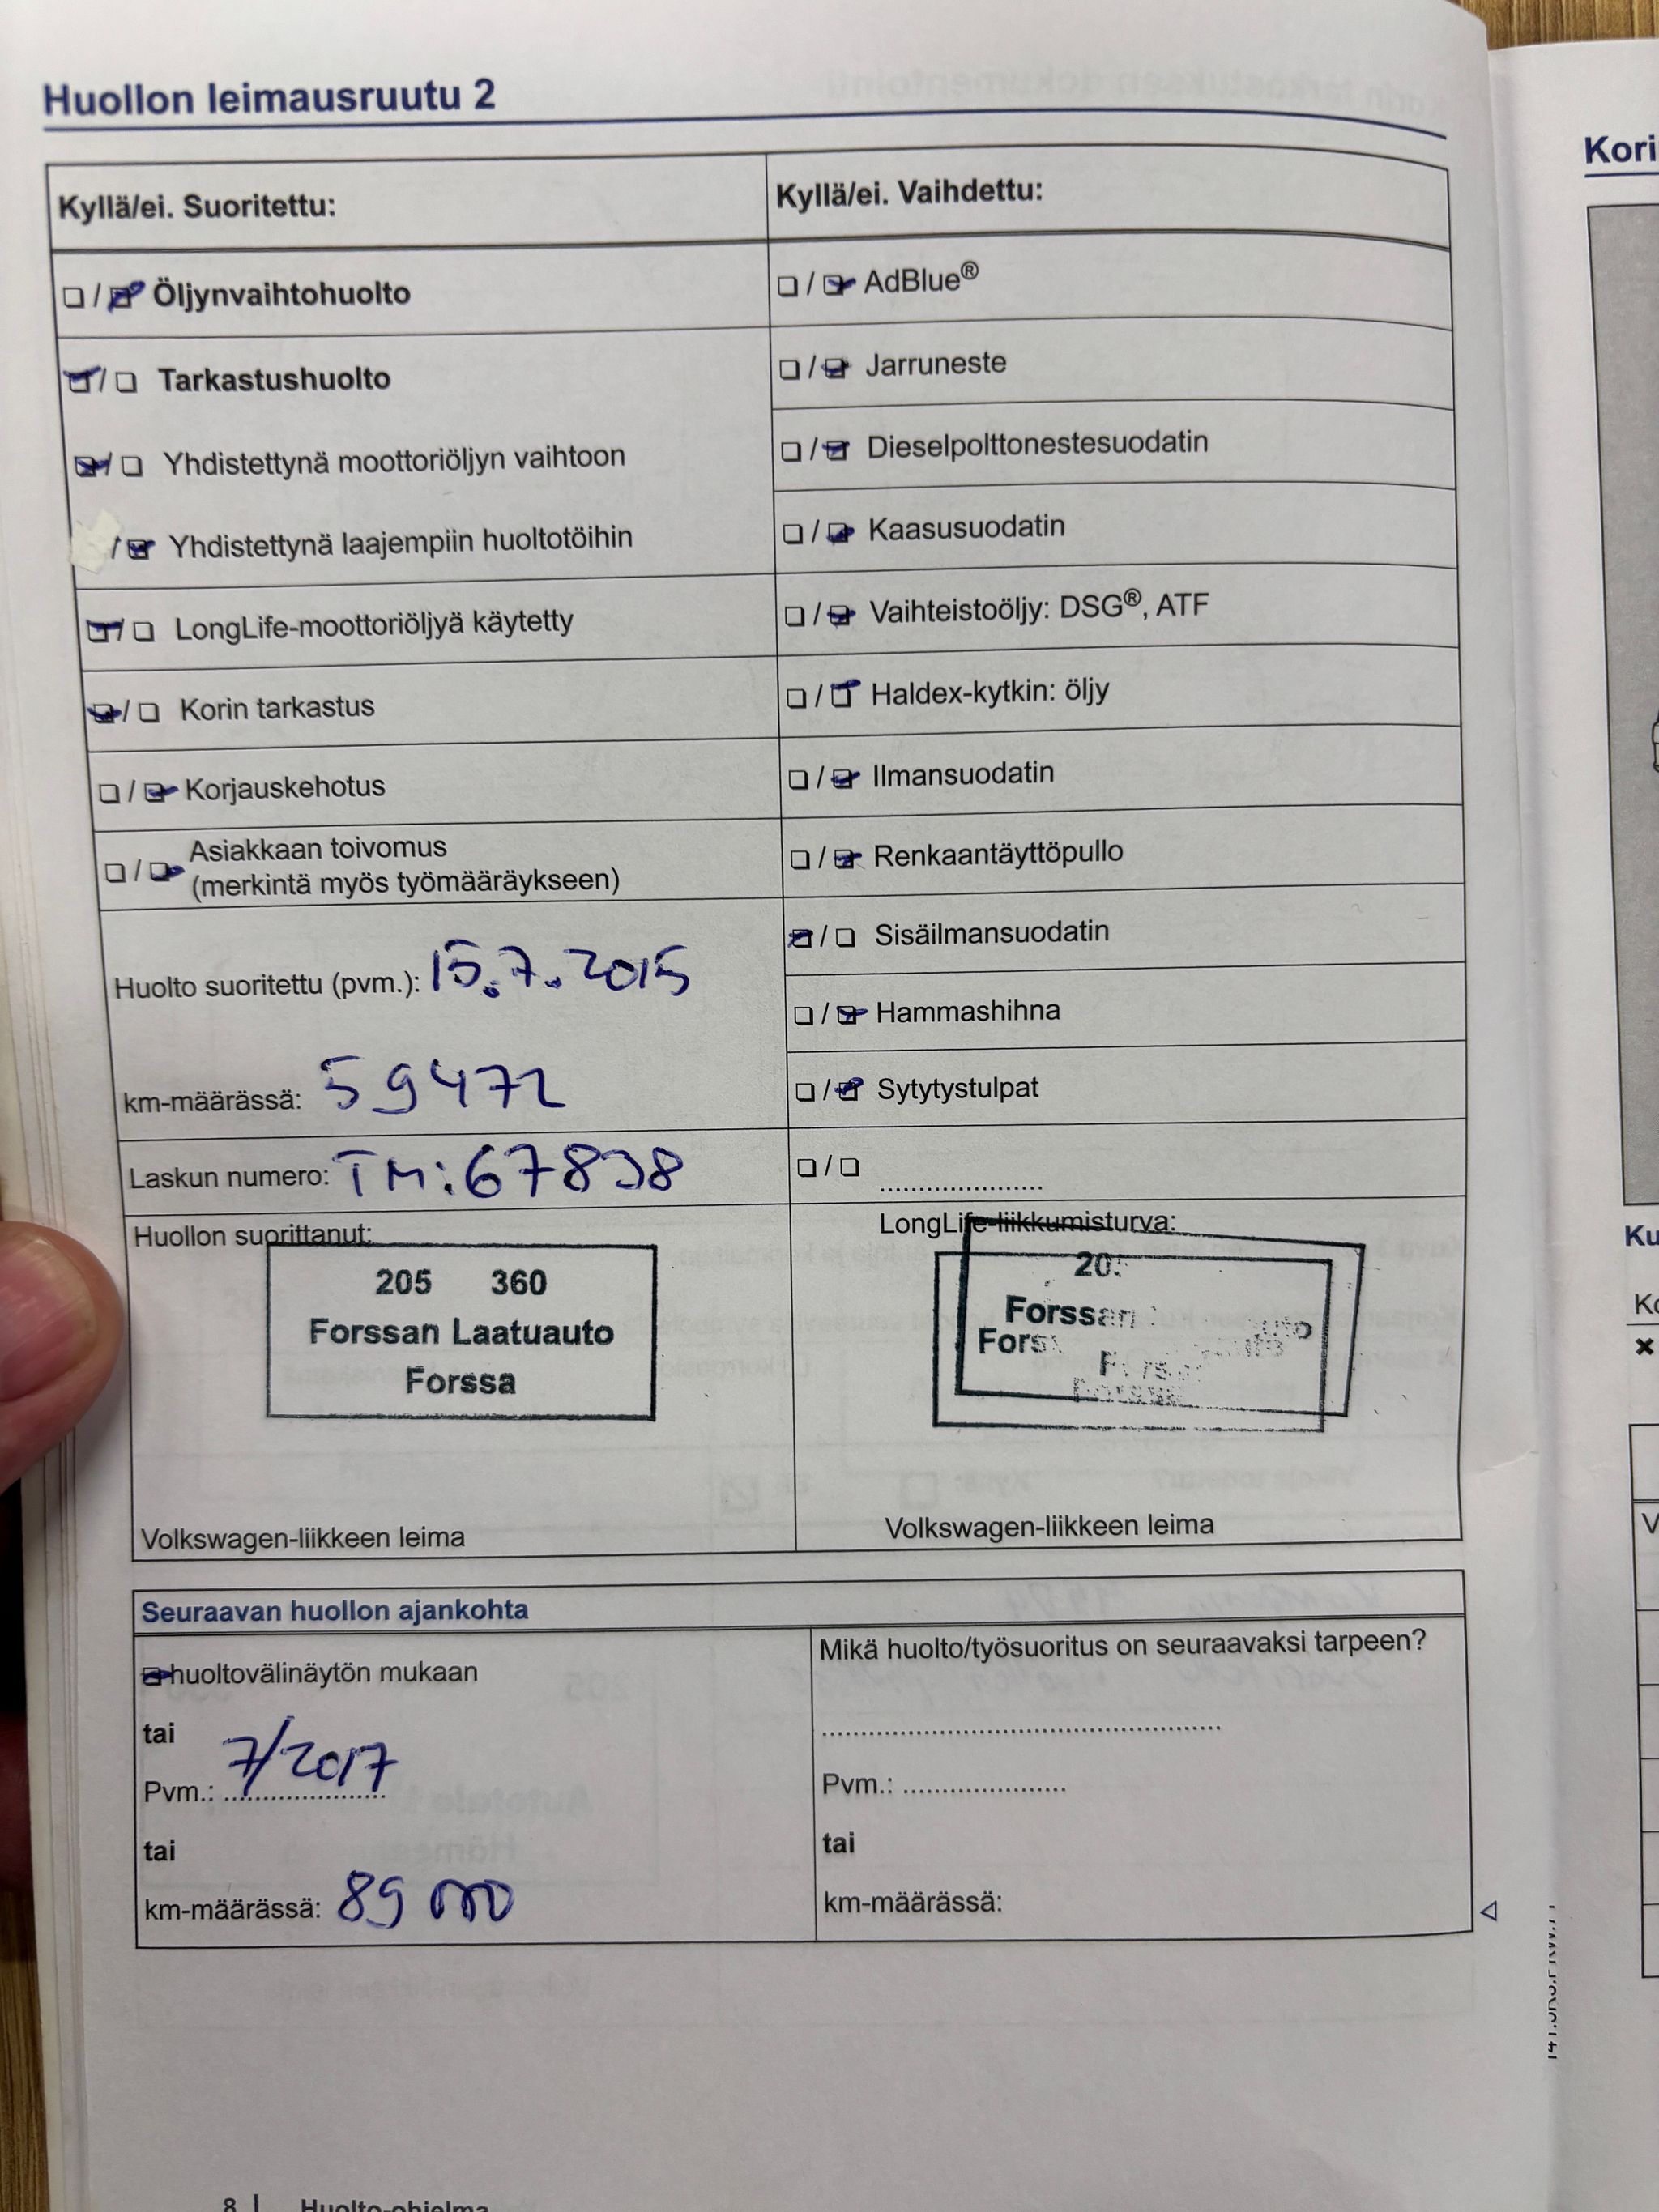 Huollon leimausruutu 2
Kori
Kyllä/ei. Suoritettu:
Öljynvaihtohuolto
Tarkastushuolto
Yhdistettynä moottoriöljyn vaihtoon
Yhdistettynä laajempiin huoltotöihin
LongLife-moottoriöljyä käytetty
Korin tarkastus
Korjauskehotus
Asiakkaan toivomus
(merkintä myös työmääräykseen)
Huolto suoritettu (pvm.): 15.7.2015
km-määrässä: 59472
Laskun numero: TM:67838
Huollon suorittanut:
205 360
Forssan Laatuauto
Forssa
Volkswagen-liikkeen leima
Kyllä/ei. Vaihdettu:
AdBlue®
Jarruneste
Dieselpolttonestesuodatin
Kaasusuodatin
Vaihteistoöljy: DSG®, ATF
Haldex-kytkin: öljy
Ilmansuodatin
Renkaantäyttöpullo
Sisäilmansuodatin
Hammashihna
Sytytystulpat
LongLife-liikkumisturva:
Forssan
Volkswagen-liikkeen leima
Seuraavan huollon ajankohta
huoltovälinäytön mukaan
tai
Pvm.: 7/2017
tai
km-määrässä: 89 000
Mikä huolto/työsuoritus on seuraavaksi tarpeen?
Pvm.:
tai
km-määrässä:
8 Huolto-ohjelma